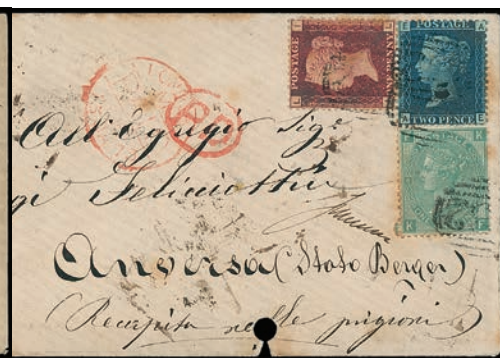 POSTAGE
ONE PENNY
POSTAGE
TWO PENCE
PD
All'Egregio Sigr
gi Feliciotti
Anversa (Stato Berger)
(Recapito nelle prigioni)